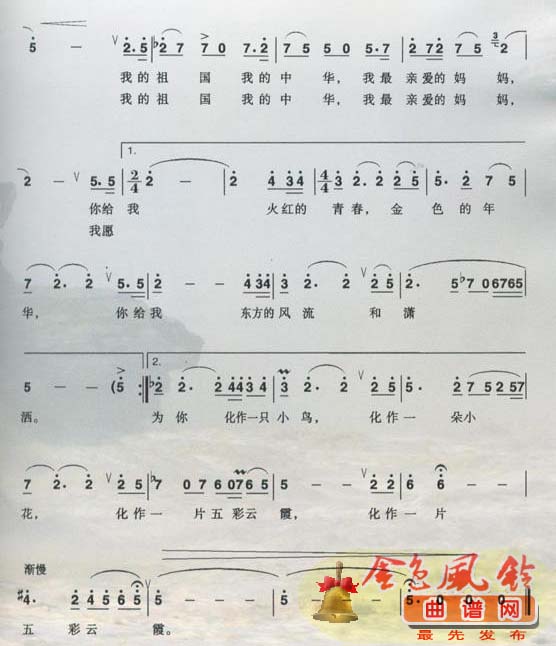 5 - 2. 5 | ♭2 7 7 0 7. 2 | 7 5 5 0 5. 7 | 2 7 2 7 5 3 2
我的祖 国 我的中 华, 我最 亲爱的妈 妈,
我的祖 国 我的中 华, 我最 亲爱的妈 妈,
1.
2 - 5. 5 | 2/4 2 - | 2 4 3 4 | 4/4 3 2. 2 2 5 | 5. 2 7 5
你给 我 火红的 青春, 金 色 的 年
我愿
7 2. 2. 5. 5 | 2 - - 4 3 4 | 3 2. 2 2 5 | 2. 5 ♭7 0 6 7 6 5
华, 你给 我 东方的 风 流 和 潇
2.
5 - - (5 :| ♭2 2. 2 4 4 3 4 | 3 2. 2 2 5 | 5. 2 5 2 5 7
洒。 为 你 化作一只 小 鸟, 化作 一 朵小
7 2. 2. 2 5 | ♭7 0 7 6 0 7 6 5 | 5 - - 2 2 | 6 6 -
花, 化作 一 片 五 彩云 霞, 化作 一 片
渐慢
#4. 2 4 5 6 5 | 5 - - - | 5 - - - | 5 0 0 0
五 彩云 霞。
金色風鈴
曲谱网
最先发布